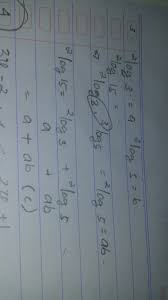 ²log 3 = a ³log 5 = b
²log 15 =
²log 3 ³log 5 = ²log 5 = ab
²log 15 = ²log 3 + ²log 5
a + ab
= a + ab (c)